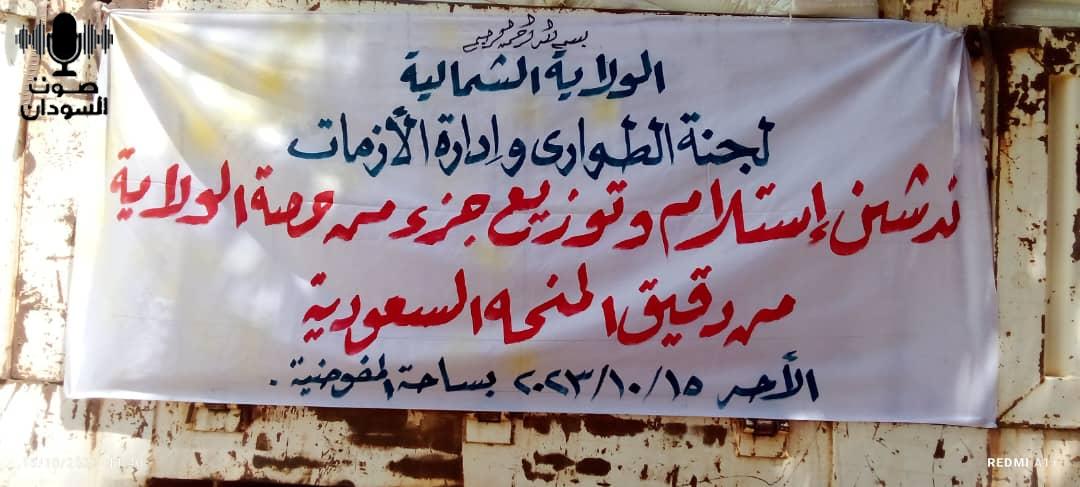 صوت
السودان
بسم الله الرحمن الرحيم
الولاية الشمالية
لجنة الطوارى وإدارة الأزمات
تدشين إستلام وتوزيع جزء من حصة الولاية
من دقيق المنحه السعودية
الأحد ٢٠٢٣/١٠/١٥ بساحة المفوضية .
REDMI A1+